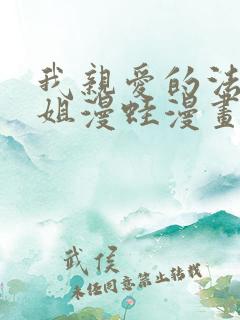 我親愛的法
姐漫蛙漫畫
武侯
未經同意禁止轉載